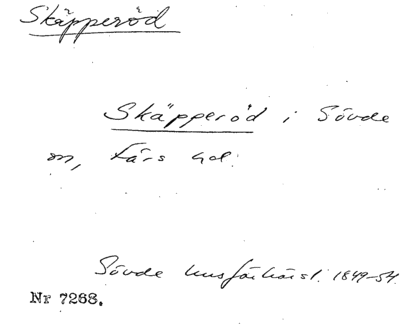 Skäpperöd
Skäpperöd i Sövde
sn, Färs hd.
Sövde husförhörsl. 1849-54.
Nr 7268.